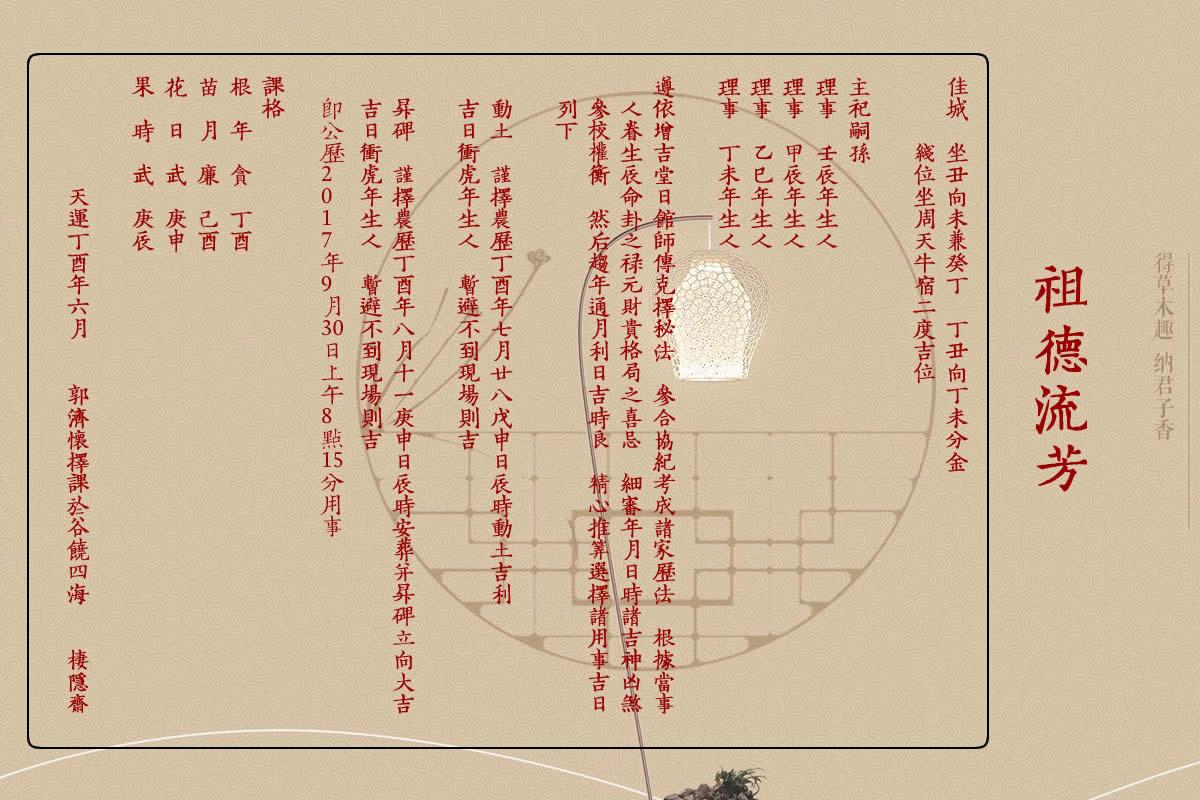 得草木趣 纳君子香
祖德流芳
佳城 坐丑向未兼癸丁 丁丑向丁未分金
綫位坐周天牛宿二度吉位
主祀嗣孫
理事 壬辰年生人
理事 甲辰年生人
理事 乙巳年生人
理事 丁未年生人
遵依增吉堂日館師傳克擇秘法 參合協紀考成諸家歷法 根據當事
人眷生辰命卦之禄元財貴格局之喜忌 細審年月日時諸吉神凶煞
參校權衡 然后趨年通月利日吉時良 精心推算選擇諸用事吉日
列下
動土 謹擇農歷丁酉年七月廿八戊申日辰時動土吉利
吉日衝虎年生人 暫避不到現場則吉
昇碑 謹擇農歷丁酉年八月十一庚申日辰時安葬并昇碑立向大吉
吉日衝虎年生人 暫避不到現場則吉
即公歷2017年9月30日上午8點15分用事
課格
根年貪丁酉
苗月廉己酉
花日武庚申
果時武庚辰
天運丁酉年六月 郭濟懷擇課於谷饒四海 棲隱齋